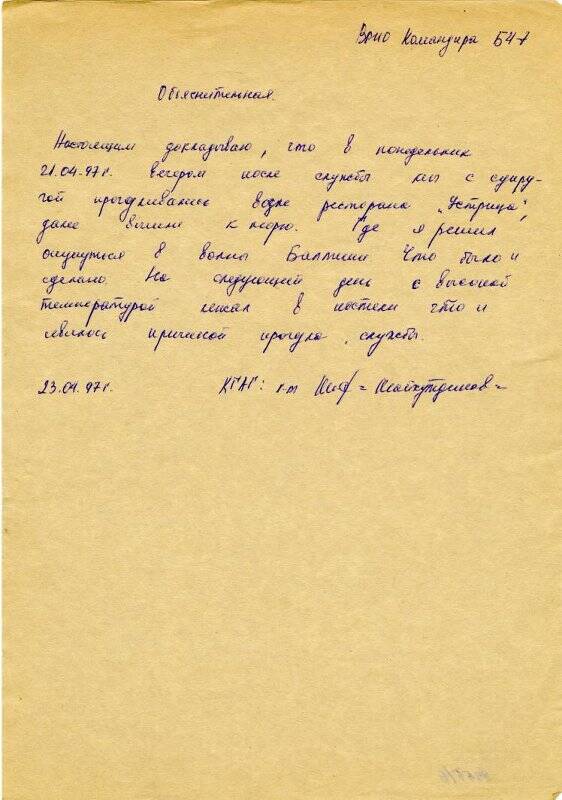 Врио Командира БЧ-7
Объяснительная.
Настоящим докладываю, что в понедельник
21.04.97г. вечером после службы мы с супру-
гой прогуливались возле ресторана „Устрица",
далее вышли к морю. Где я решил
окунуться в волны Балтики что было и
сделано. На следующий день с высокой
температурой лежал в постели что и
явилось причиной прогула, службы.
23.04.97г.